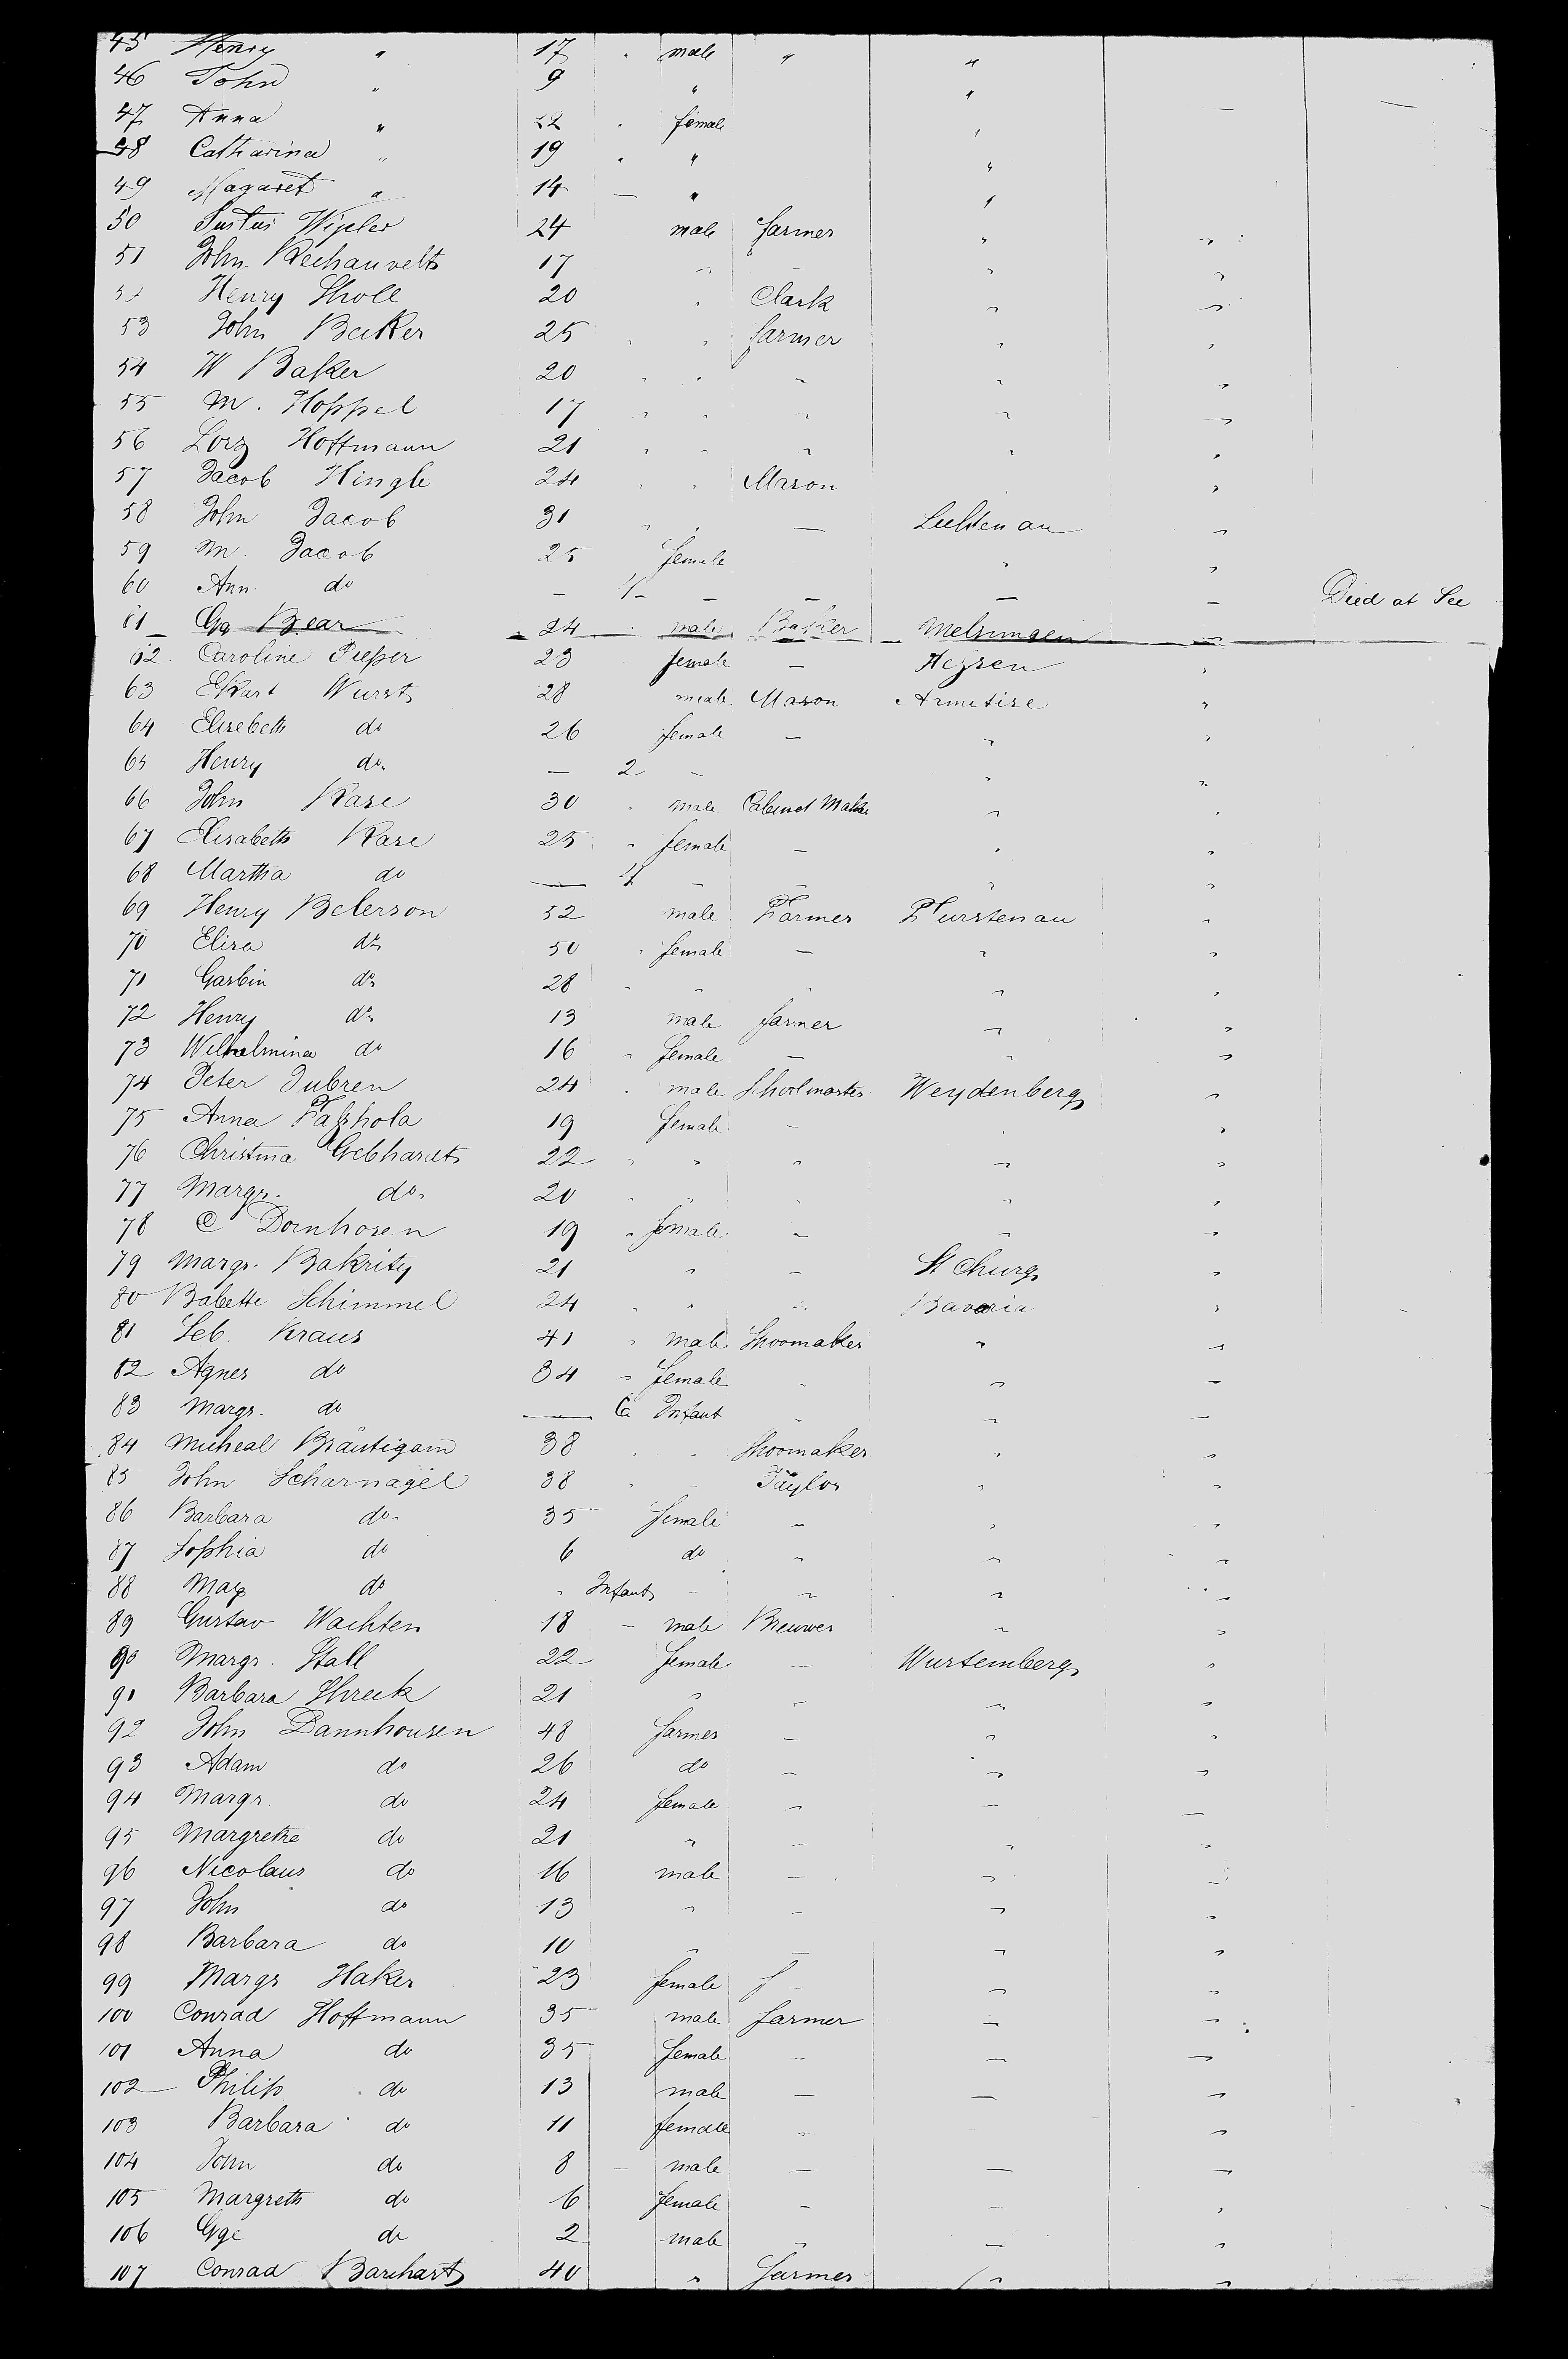 45 Henry " 17 male " "
46 John " 9 " "
47 Anna " 22 female "
48 Catharina " 19 " "
49 Magaret " 14 — " "
50 Justus 24 male farmer " "
51 John 17 " "
52 Henry Sholl 20 " Clark " "
53 John Becker 25 " farmer " "
54 W Baker 20 " " " "
55 M. Hoppel 17 " " " "
56 Hoffmann 21 " " " "
57 Jacob Hingle 24 " Mason "
58 John Jacob 31 " — "
59 M. Jacob 25 female " "
60 Ann do — — — — — Died at See
61 Gg Bear 24 male Baker Melsungen "
62 Caroline Pieper 23 female — "
63 Ekart Wurst 28 male Mason "
64 Elisebeth do 26 female — " "
65 Henry do — 2 — " "
66 John Kase 30 male Cabinet Maker " "
67 Elisabeth Kase 25 female — " "
68 Martha do — — — " "
69 Henry Beterson 52 male Farmer Furstenau "
70 Elisa do 50 female — " "
71 Garbin do 28 " " "
72 Henry do 13 male farmer " "
73 Welhelmina do 16 female — " "
74 Peter Dubren 24 male Shoolmaster Weydenberg "
75 Anna 19 female — "
76 Christina Gebhardt 22 " " " "
77 Margr. do 20 " " " "
78 C Dornhosen 19 female — " "
79 Margr. Bakrity 21 " — "
80 Babette Schimmel 24 " " Bavaria "
81 Seb. Kraus 41 male Shoomaker " "
82 Agnes do 34 female " "
83 Margr. do — 6 Infant " " —
84 Micheal Bräutigam 38 " Shoomaker " "
85 John Scharnagel 38 " Taylor " "
86 Barbara do 35 female — " "
87 Sophia do 6 do " " "
88 May do " Infant — " " "
89 Gustav Wachten 18 male Breuwer " "
90 Margr. Stall 22 female Wurtemberg "
91 Barbara Shreck 21 " " " "
92 John Dannhousen 48 farmer — " "
93 Adam do 26 do — " "
94 Margr. do 24 female " — —
95 Margrethe do 21 " — " "
96 Nicolaus do 16 male — " "
97 John do 13 " — " "
98 Barbara do 10 " — " "
99 Margr Haker 23 female f " "
100 Conrad Hoffmann 35 male farmer — "
101 Anna do 35 female — — —
102 Philip do 13 male — — "
103 Barbara do 11 female — "
104 John do 8 — male — — —
105 Margreth do 6 female — — "
106 Gge do 2 male " — "
107 Conrad Barehart 40 " farmer " "